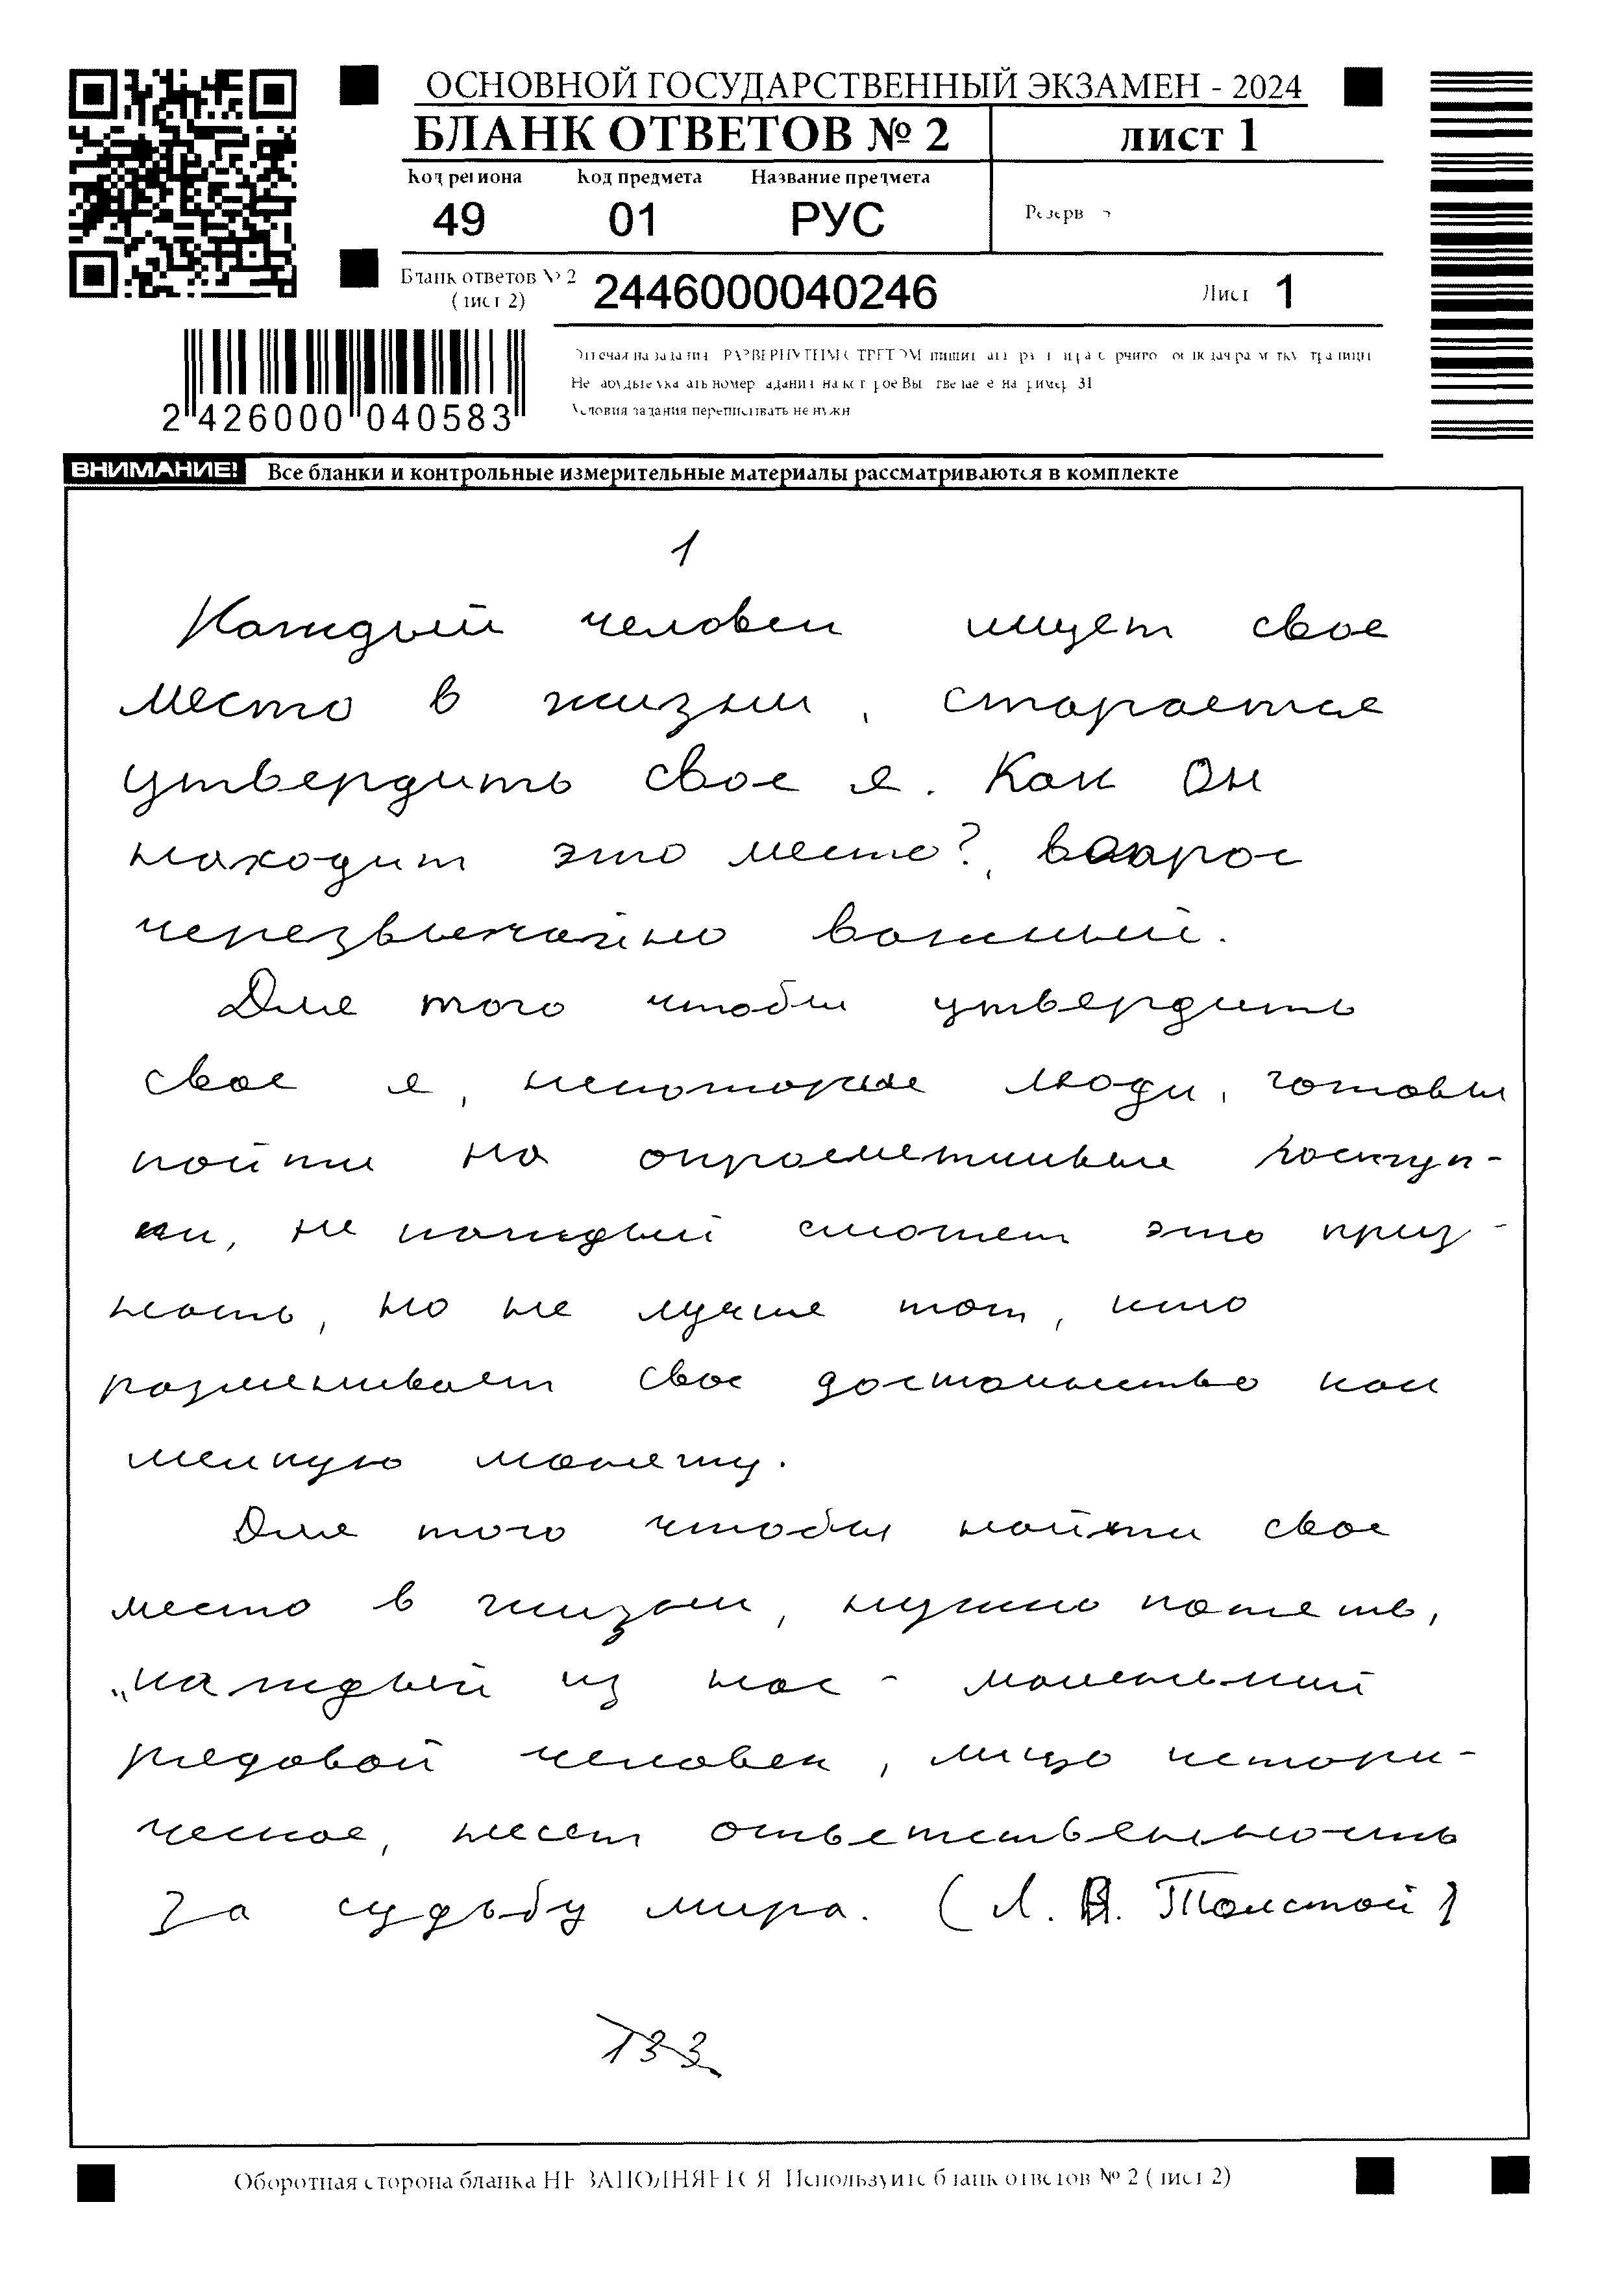 ОСНОВНОЙ ГОСУДАРСТВЕННЫЙ ЭКЗАМЕН - 2024
БЛАНК ОТВЕТОВ № 2
лист 1
Код региона Код предмета Название предмета
Резерв
49 01 РУС
Бланк ответов № 2
(лист 2)
2446000040246
Лист 1
Условия задания переписывать не нужно
2 426000 040583
ВНИМАНИЕ! Все бланки и контрольные измерительные материалы рассматриваются в комплекте
1
Каждый человек ищет свое
место в жизни, старается
утвердить свое я. Как Он
находит это место?, вопрос
черезвычайно важный.
Для того чтобы утвердить
свое я, некоторые люди, готовы
пойти на опрометчивые поступ-
ки, не каждый сможет это приз-
нать, но не лучше тот, кто
разменивает свое достоинство как
мелкую монету.
Для того чтобы найти свое
место в жизни, нужно
„каждый из нас - маленький
рядовой человек, лицо истори-
ческое, несет ответственность
за судьбу мира. (Л. Н. Толстой)
Оборотная сторона бланка НЕ ЗАПОЛНЯЕТСЯ Используйте бланк ответов № 2 (лист 2)